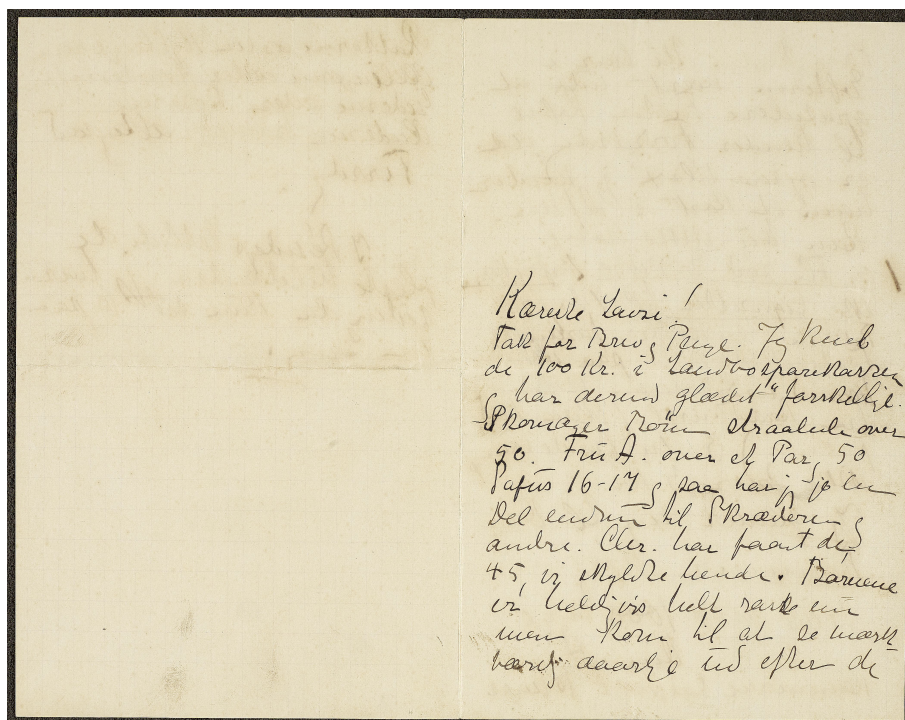 Kæreste Lavsi!
Tak for Brev og Penge. Jeg
de 100 Kr. i Landbosparekassen
og har dermed "glædet" forskellige.
Skomager straalede over
50. Frú A. over et Par og 50
16-17 og saa har jeg jo en
Del endnu til Skræderen og
andre. Chr. har faaet de
45, vi skyldte hende. Børnene
er heldigvis helt raske nu
men kom til at se mærk
værdig daarlige ud efter de